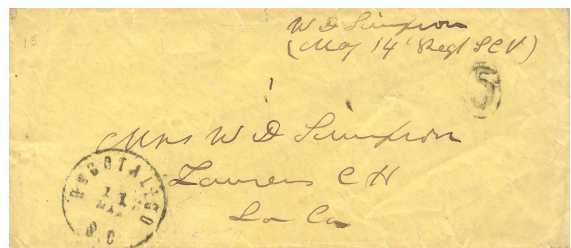 13
W D Simpson
(Maj 14 Regt S C V)
5
Mrs W D Simpson
Laurens C H
So Ca
POCOTALIGO
11
MAR
S C